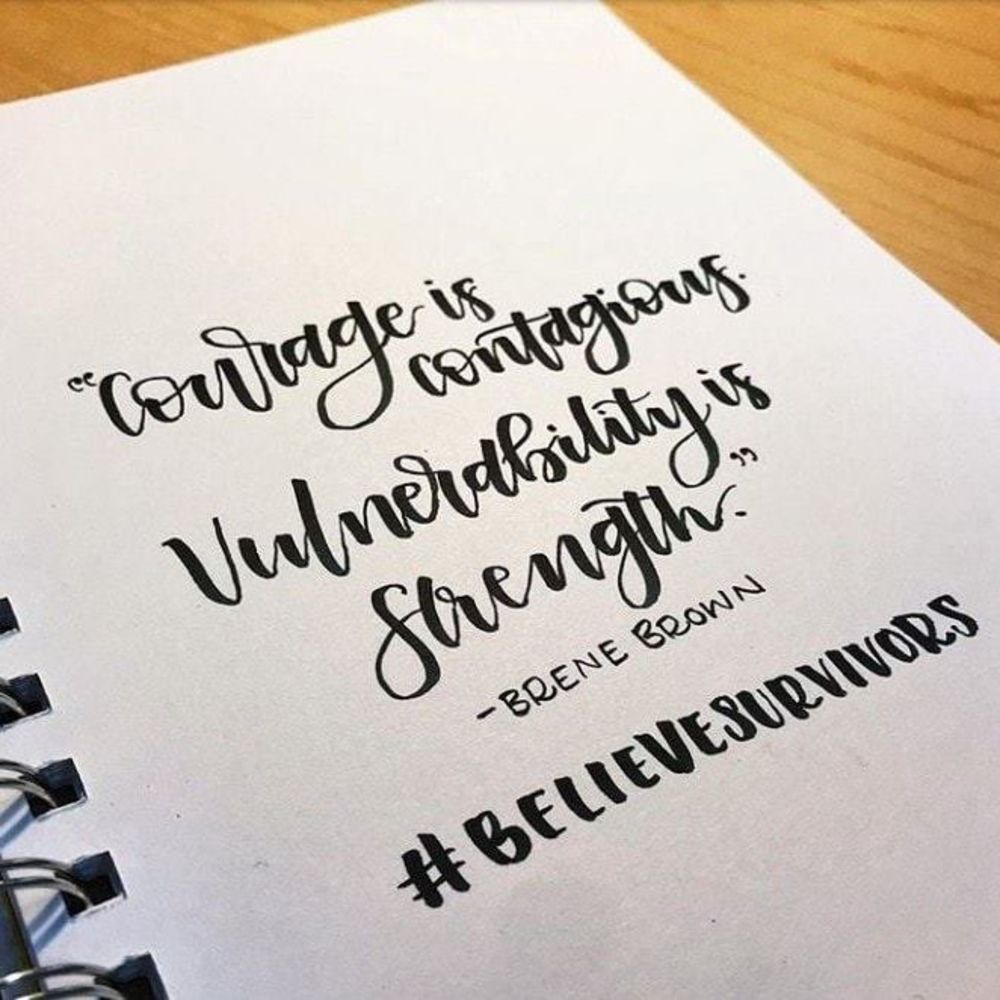 "Courage is
contagious.
Vulnerability is
Strength."
-BRENE BROWN
#BELIEVESURVIVORS